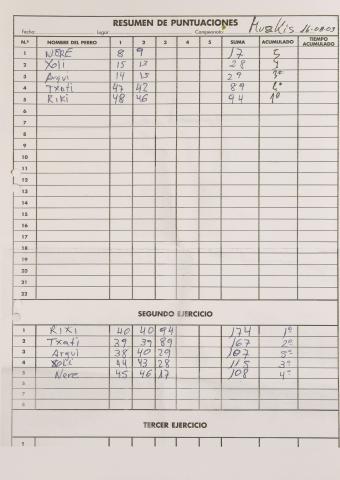 RESUMEN DE PUNTUACIONES
Fecha: Lugar: Campeonato: Muskis
N.º NOMBRE DEL PERRO 1 2 3 4 5 SUMA ACUMULADO TIEMPO ACUMULADO
1 NERE 8 9 17 5
2 Xoli 15 13 28 4
3 Argui 14 15 29 3º
4 Txati 47 42 89 2º
5 Riki 48 46 94 1º
6
7
8
9
10
11
12
13
14
15
16
17
18
19
20
21
22
SEGUNDO EJERCICIO
1 RIKI 40 40 94 174 1º
2 Txati 39 39 89 167 2º
3 Argui 38 40 29 107 5º
4 Xoli 44 43 28 115 3º
5 Nere 45 46 17 108 4º
6
7
8
TERCER EJERCICIO
1